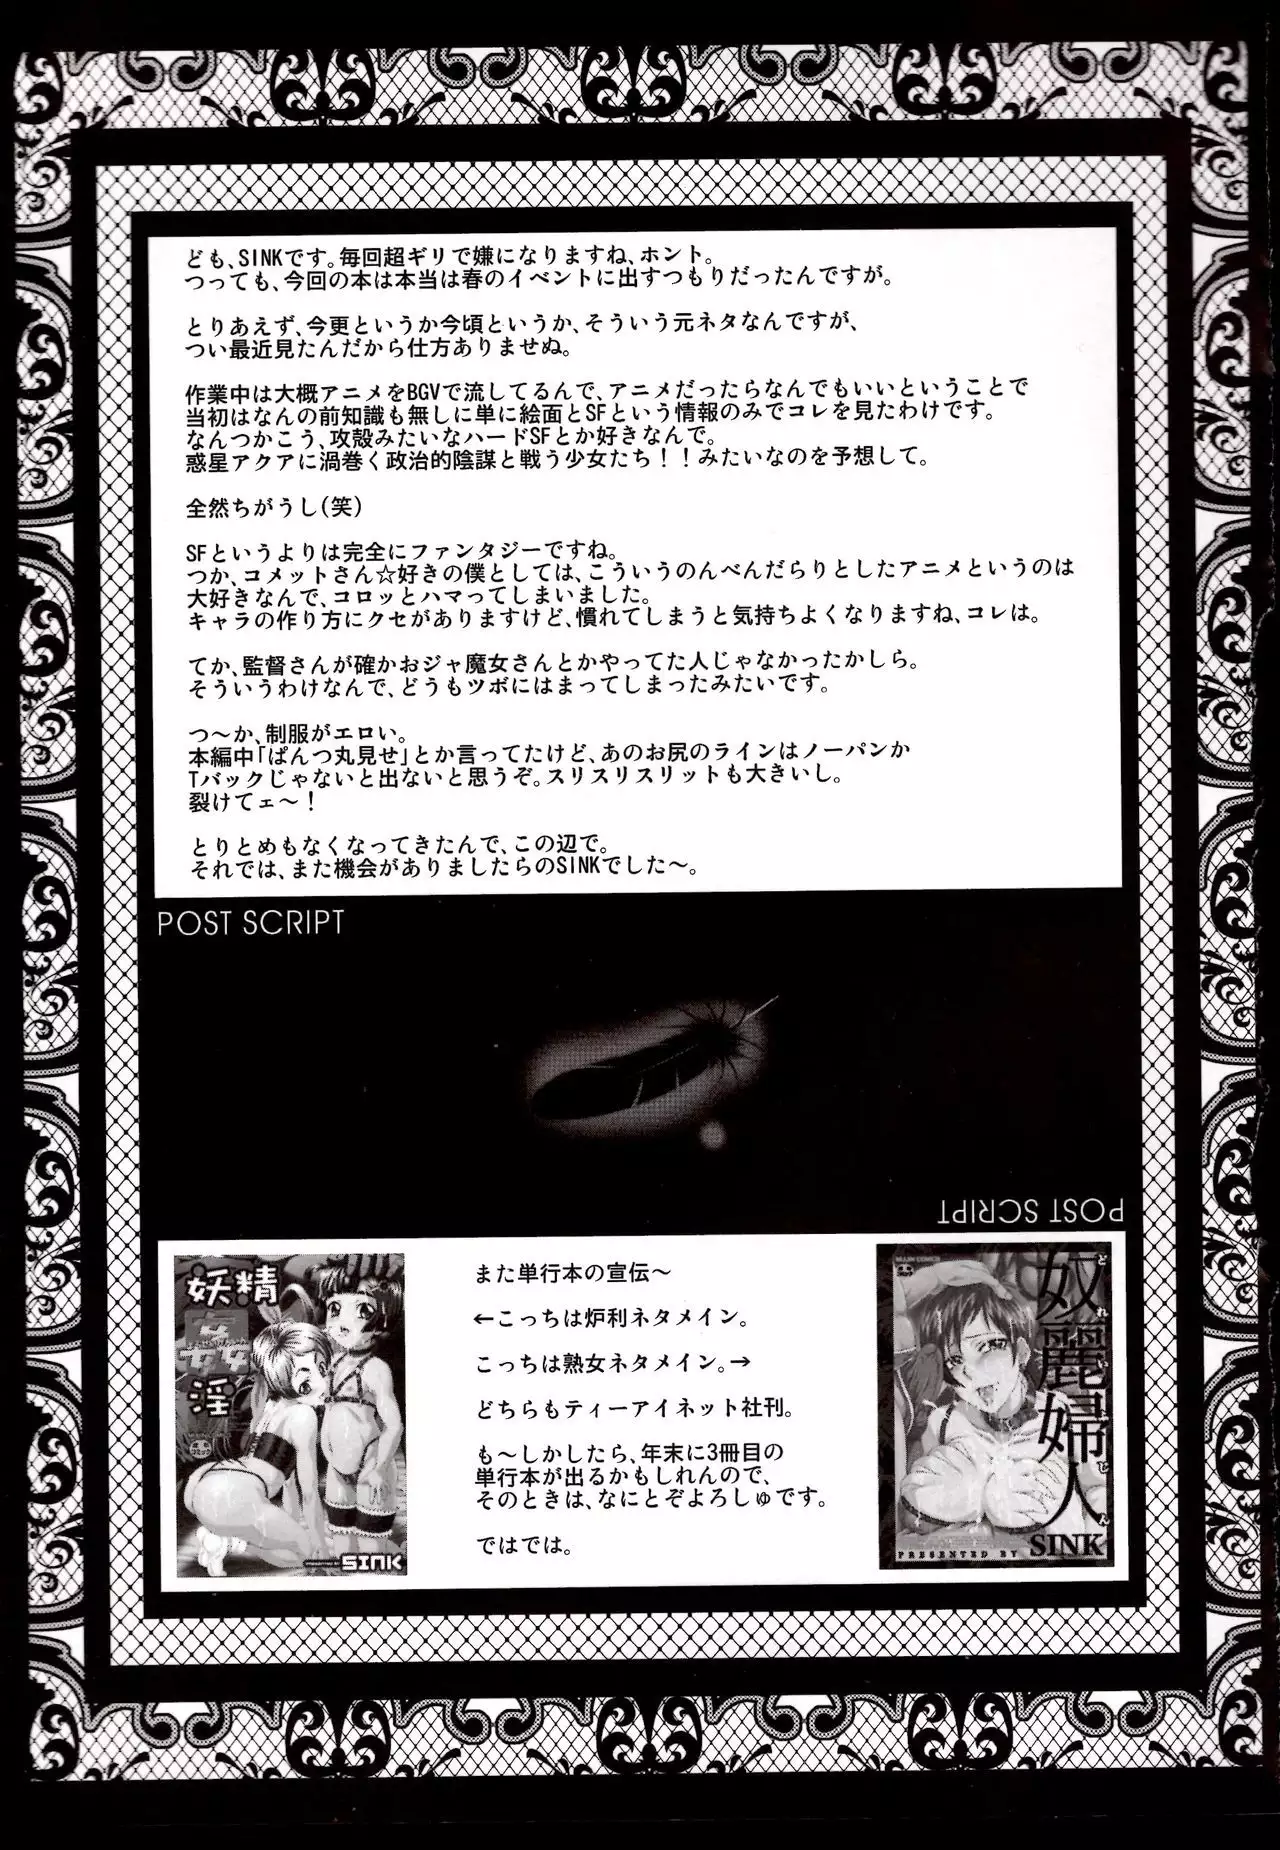 ども、SINKです。毎回超ギリで嫌になりますね、ホント。
つっても、今回の本は本当は春のイベントに出すつもりだったんですが。
とりあえず、今更というか今頃というか、そういう元ネタなんですが、
つい最近見たんだから仕方ありませぬ。
作業中は大概アニメをBGVで流してるんで、アニメだったらなんでもいいということで
当初はなんの前知識も無しに単に絵面とSFという情報のみでコレを見たわけです。
なんつかこう、攻殻みたいなハードSFとか好きなんで。
惑星アクアに渦巻く政治的陰謀と戦う少女たち！！みたいなのを予想して。
全然ちがうし(笑)
SFというよりは完全にファンタジーですね。
つか、コメットさん☆好きの僕としては、こういうのんべんだらりとしたアニメというのは
大好きなんで、コロッとハマってしまいました。
キャラの作り方にクセがありますけど、慣れてしまうと気持ちよくなりますね、コレは。
てか、監督さんが確かおジャ魔女さんとかやってた人じゃなかったかしら。
そういうわけなんで、どうもツボにはまってしまったみたいです。
つ～か、制服がエロい。
本編中「ぱんつ丸見せ」とか言ってたけど、あのお尻のラインはノーパンか
Tバックじゃないと出ないと思うぞ。スリスリスリットも大きいし。
裂けてェ～！
とりとめもなくなってきたんで、この辺で。
それでは、また機会がありましたらのSINKでした～。
POST SCRIPT
POST SCRIPT
妖精
淫
PRESENTED BY SINK
また単行本の宣伝～
←こっちは炉利ネタメイン。
こっちは熟女ネタメイン。→
どちらもティーアイネット社刊。
も～しかしたら、年末に3冊目の
単行本が出るかもしれんので、
そのときは、なにとぞよろしゅです。
ではでは。
奴麗婦人
どれいふじん
PRESENTED BY SINK